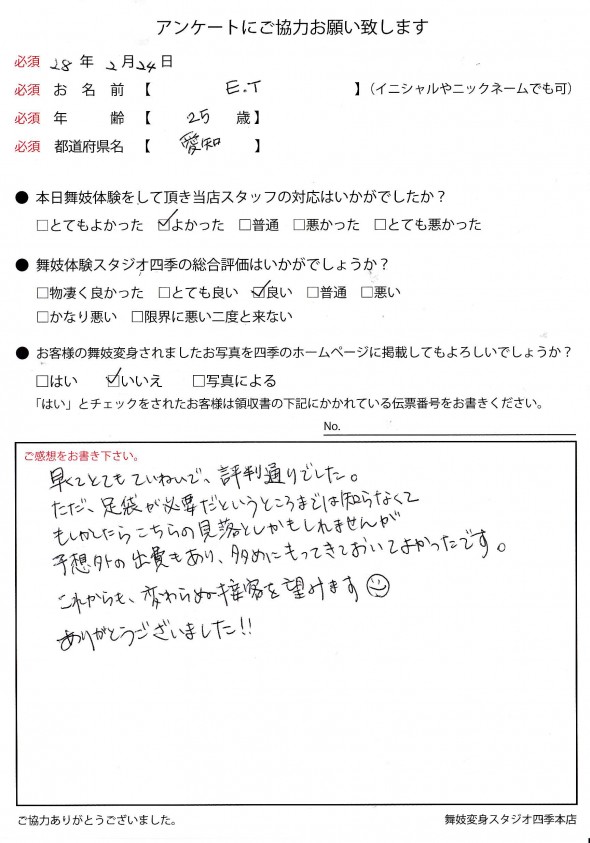 アンケートにご協力お願い致します
必須 28 年 2 月 24 日
必須 お 名 前 【 E.T 】（イニシャルやニックネームでも可）
必須 年 齢 【 25 歳】
必須 都道府県名 【 愛知 】
● 本日舞妓体験をして頂き当店スタッフの対応はいかがでしたか？
□とてもよかった ☑よかった □普通 □悪かった □とても悪かった
● 舞妓体験スタジオ四季の総合評価はいかがでしょうか？
□物凄く良かった □とても良い ☑良い □普通 □悪い
□かなり悪い □限界に悪い二度と来ない
● お客様の舞妓変身されましたお写真を四季のホームページに掲載してもよろしいでしょうか？
□はい ☑いいえ □写真による
「はい」とチェックをされたお客様は領収書の下記にかかれている伝票番号をお書きください。
No.
ご感想をお書き下さい。
早くてとてもていねいで、評判通りでした。
ただ、足袋が必要だというところまでは知らなくて
もしかしたらこちらの見落としかもしれませんが
予想外の出費もあり、多めにもってきておいてよかったです。
これからも、変わらぬ接客を望みます☺
ありがとうございました!!
ご協力ありがとうございました。
舞妓変身スタジオ四季本店